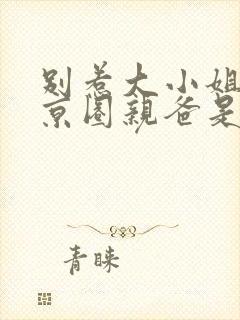 别惹大小姐
京圈亲爸是
青睐